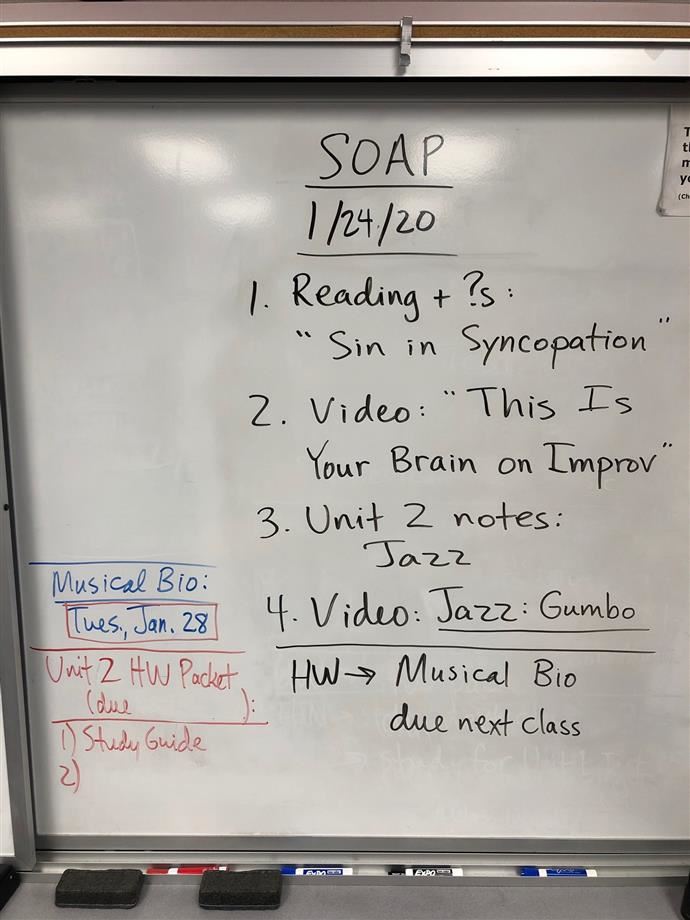 SOAP
1/24/20
1. Reading + ?s:
"Sin in Syncopation"
2. Video: "This Is
Your Brain on Improv"
3. Unit 2 notes:
Jazz
4. Video: Jazz: Gumbo
HW → Musical Bio
due next class
Musical Bio:
Tues., Jan. 28
Unit 2 HW Packet
(due ):
1) Study Guide
2)
EXPO
EXPO